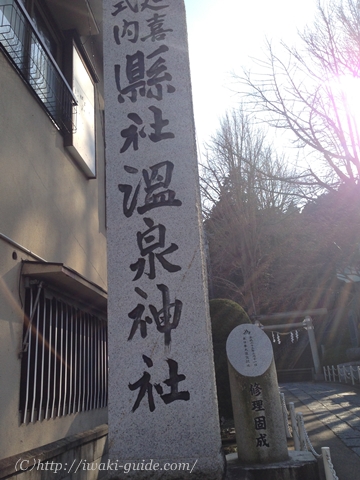 延喜
式内
縣社温泉神社
修理固成
(C)http://iwaki-guide.com/